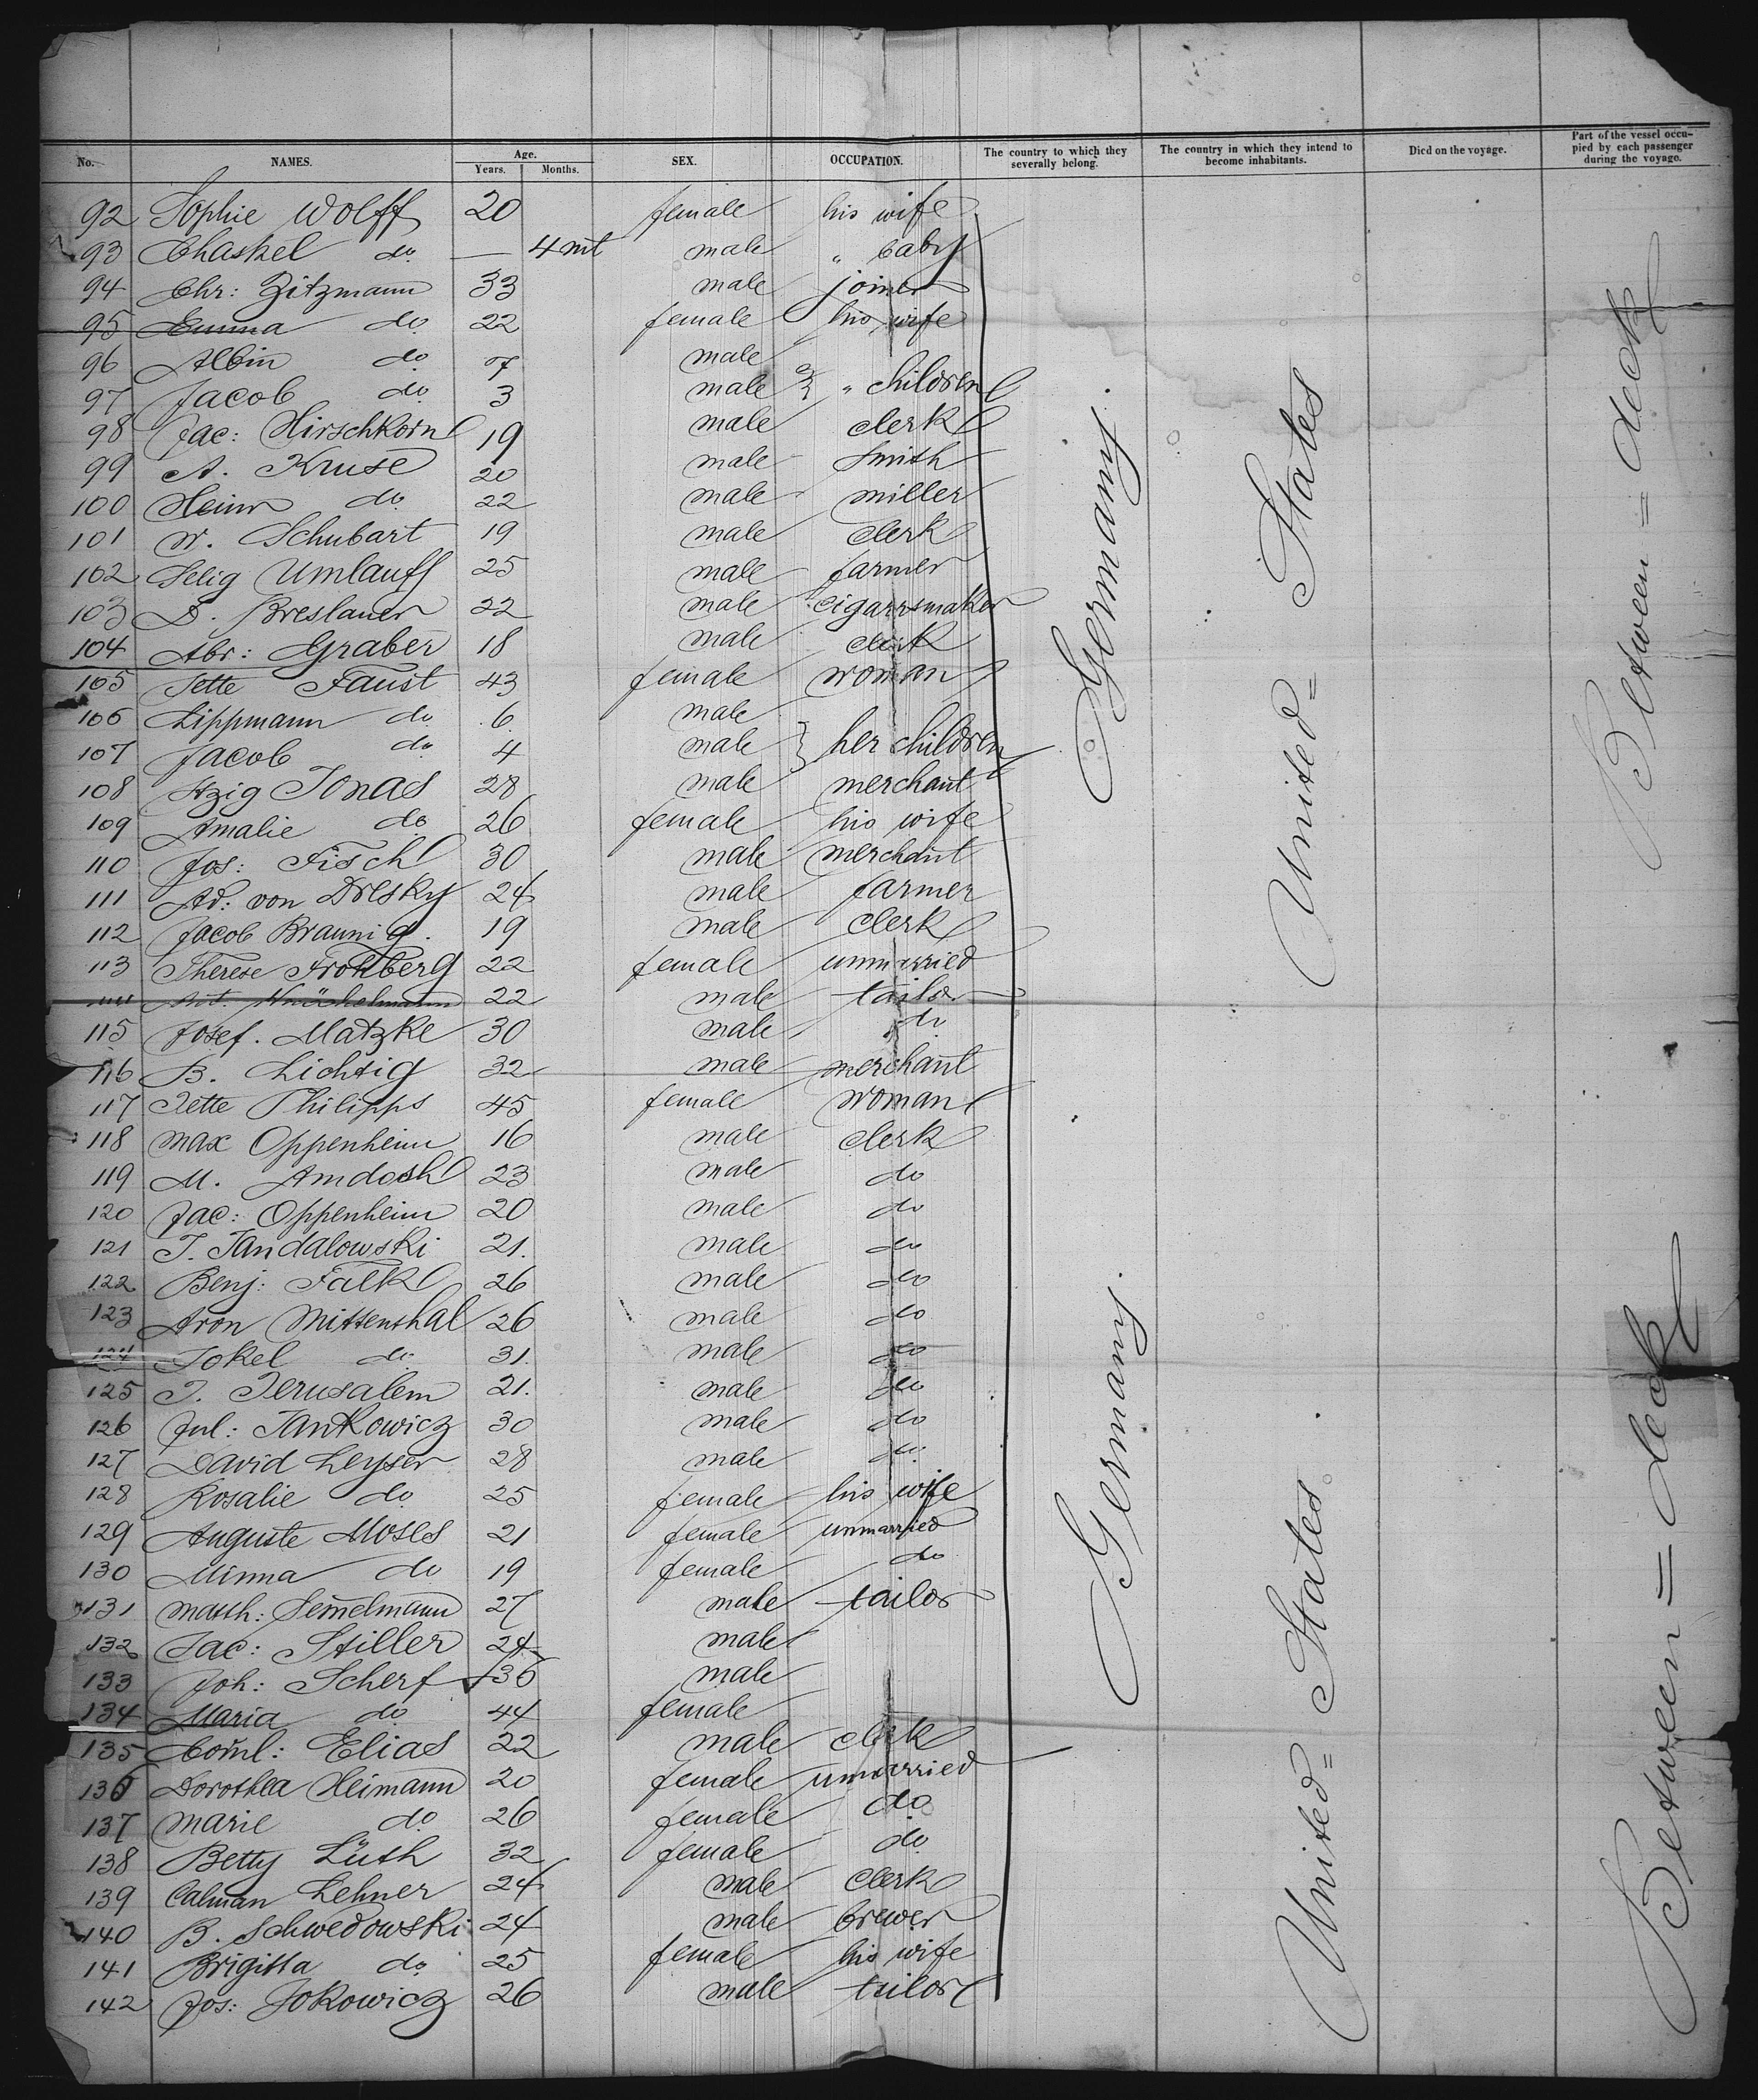 No. NAMES. Age. Years. Months. SEX. OCCUPATION. The country to which they severally belong. The country in which they intend to become inhabitants. Died on the voyage. Part of the vessel occupied by each passenger during the voyage.
92 Sophie Wolff 20 female his wife
93 Chaskel do — 4 mt male " baby
94 Chr: Zitzmann 33 male joiner
95 Emma do 22 female his wife
96 Albin do 7 male
97 Jacob do 3 male } " children
98 Jac: Hirschkorn 19 male clerk
99 A. Kruse 20 male Smith
100 Heinr do 22 male miller
101 W. Schubart 19 male clerk
102 Selig Umlauff 25 male farmer
103 D. Breslauer 22 male cigarrsmaker
104 Abr: Graber 18 male clerk
105 Jette Faust 43 female woman
106 Lippmann do 6 male
107 Jacob do 4 male } her children
108 Itzig Jonas 28 male merchant
109 Amalie do 26 female his wife
110 Jos: Fisch 30 male merchant
111 Ad: von Dresky 24 male farmer
112 Jacob Braunig. 19 male clerk
113 Therese Frohberg 22 female unmarried
22 male tailor
115 Josef. Matzke 30 male do
116 B. Lichtig 32 male merchant
117 Jette Philipps 45 female woman
118 Max Oppenheim 16 male clerk
119 M. 23 male do
120 Jac: Oppenheim 20 male do
121 J. Jandalowski 21. male do
122 Benj: Falk 26 male do
123 Aron Mittenthal 26 male do
124 Jokel do 31. male do
125 J. Jerusalem 21. male do
126 Jul: Jankowicz 30 male do
127 David Leyser 28 male do
128 Rosalie do 25 female his wife
129 Auguste Moses 21 female unmarried
130 Minna do 19 female do
131 Matth: Semelmann 27 male tailor
132 Jac: Stiller 24 male
133 Joh: Scherf 36 male
134 Maria do 44 female
135 Elias 22 male clerk
136 Dorothea Heimann 20 female unmarried
137 Marie do 26 female do
138 Betty Lüth 32 female do
139 Calman Lehner 24 male clerk
140 B. Schwedowski 24 male brewer
141 Brigitta do 25 female his wife
142 Jos: Jokowicz 26 male tailor
Germany.
United= States
Between = deck
Germany.
United= States
Between = deck